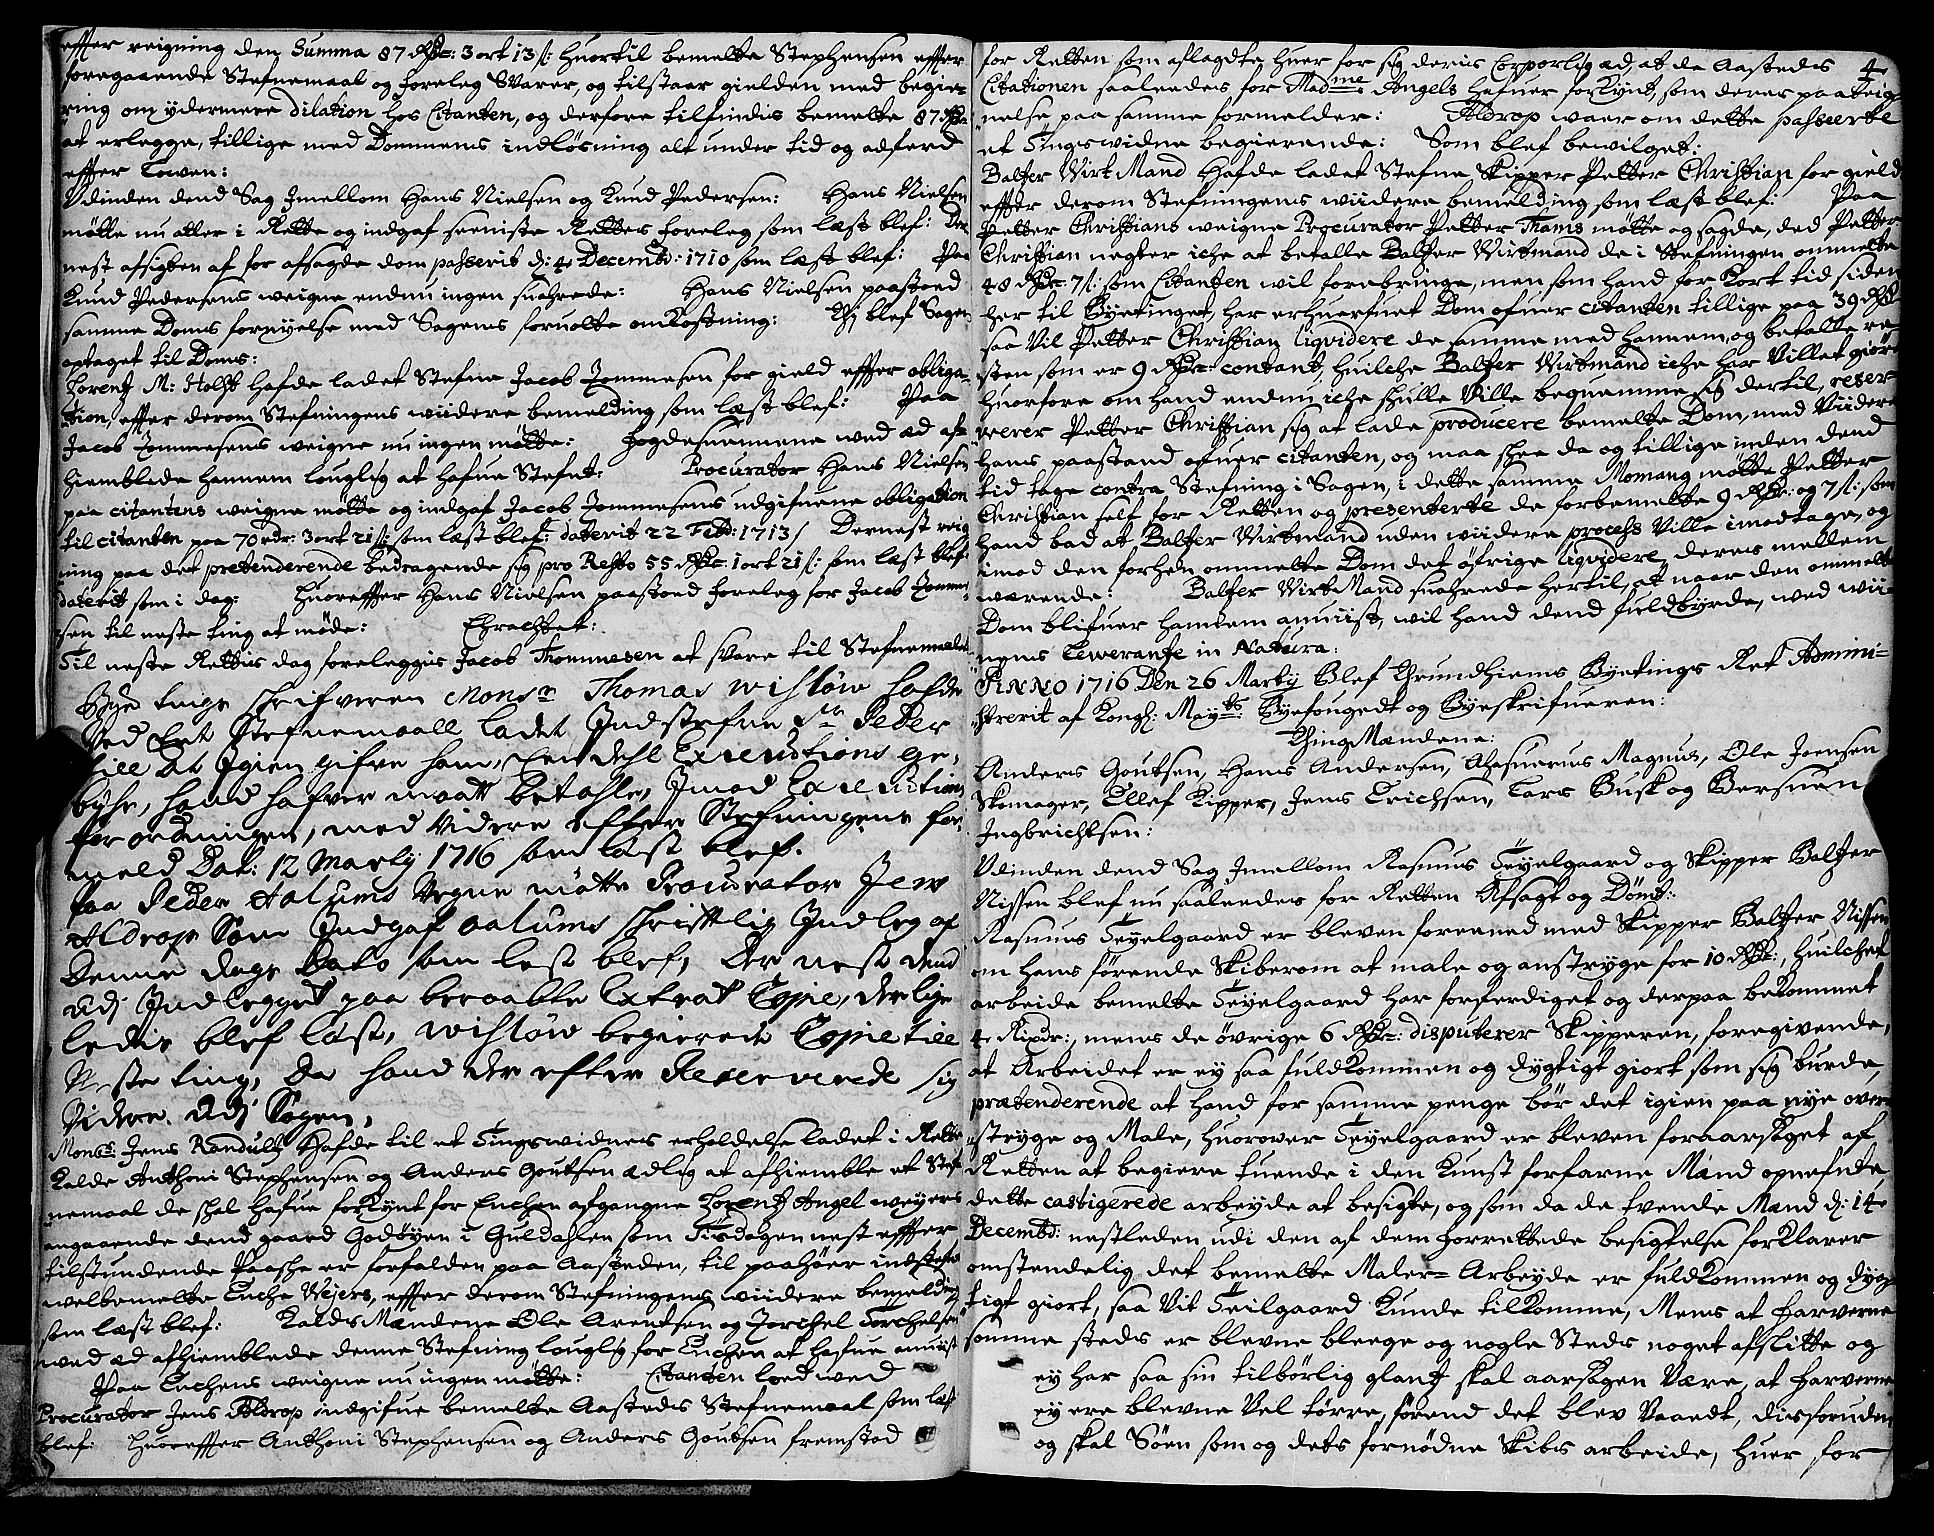 effter reigning den Summa 87 Rdr: 3 ort 13 s: huortil bemelte Stephensen effter
foregaaende Stefnemaal og foreleg Svarer, og tilstaar gielden med begie-
ring om ydermere dilation hos Citanten, og derfore tilfindis bemelte 87 Rdr
at erlegge, tillige med Dommens indløsning alt under tid og adferd
effter Lowen:
Udinden dend Sag Imellom Hans Nielsen og Knud Pedersen: Hans Nielsen
møtte nu atter i Rette og indgaf seeniste Rettes foreleg som læst blef: Der
nest afsigten af for afsagde dom passerit d: 4 Decembr: 1710 som læst blef: Paa
Knud Pedersens weigne endnu ingen suarede: Hans Nielsen paastoed
samme Doms fornyelse med Sagens foruolte omkostning: Thj blef Sagen
optaget til Doms:
Lorentz M: Holst hafde ladet Stefne Jacob Tommesen for gield effter obliga-
tion, effter derom Stefningens wiidere bemelding som læst blef: Paa
Jacob Tommesens weigne nu ingen møtte: Hogdesmennene wed æd af-
hiemblede hannem louglig at hafue Stefnt: Procurator Hans Nielsen
paa citantens weigne møtte og indgaf Jacob Tommesens udgifuene obligation
til citanten paa 70 rdr: 3 ort 21 s: som læst blef: daterit 22 Feb: 1713 / Dernest reig
ning paa det pretenderende bedragende sig pro Resto 55 Rdr: 1 ort 21 s: som læst blef
daterit som i dag: Huoreffter Hans Nielsen paastoed foreleg for Jacob Tomme-
sen til neste ting at møde: Eragtet:
Til neste Rettis dag foreleggis Jacob Thommesen at svare til Stefnemaalet
Bye tings schrifveren Monsr Thomas Wisløw hafde
Ved Eet Stefnemaall ladet Indstefne Sr Peder
till at Igien gifve ham, Een dehl Executions ge-
byhr, hand hafver maatt betahle, Imod Execution
forordningen, med Videre effter Stefningens for-
meld Dat: 12 Marty 1716 som læst blef.
Paa Peder Aalums Vegne møtte Procurator Jens
Aldrop Som Indgaf Aalums schrifftlig Indleg af
Denne dags Dato som lest blef, Der nest dend
udj Indlegget paa beraabte Extrat Copie, der lige
ledis blef læst, Wisløw begierede Copie till
Neste ting, da hand der effter Reserverede sig
Videre. Udj Sagen,
Monsr: Jens Randulf Hafde til et Tingswidnes erholdelse ladet i Rette
Kalde Anthoni Stephensen og Anders Goutsen ædlig at afhiemble et Stef-
nemaal de skal hafue forkynt for Enchen afgangne Lorentz Angel weyers
angaaende dend gaard Godøyen i Guldahlen som Tirsdagen nest effter
tilstundende Paaske er forfalden paa Aasteden, til paahøer indstefnt
welbemelte Enche Weyers, effter derom Stefningens wiidere bemelding
som læst blef: KaldsMændene Ole Arentsen og Torchel Torchelsen
wed æd afhiemblede denne Stefning louglig for Enchen at hafue anuist
Paa Enchens weigne nu ingen møtte: Citanten loed wed
Procurator Jens Aldrop indgifue bemelte Aasteds Stefnemaal som læst
blef: Huoreffter Anthoni Stephensen og Anders Goutsen fremstod
4
for Retten som aflagdte huer for sig deris Corporlig æd, at de Aasteds
Citationen saaleedes for Madme Angels hafuer forkynt, som deres paateig-
nelse paa samme formelder: Aldrop waer om dette passerte
et Tingswidne begierende: Som blef bewilget:
Baltzer Wirt Mand hafde ladet Stefne Skipper Petter Christian for gield
effter derom Stefningens wiidere bemelding som læst blef: Paa
Petter Christians weigne Procurator Petter Thams møtte og sagde, ded Petter
Christian negter iche at betalle Baltzer Wirtmand de i Stefningen ommelte
48 Rdr: 7 s: som Citanten wil forebringe, men som hand for Kort tid siden
her til Byetinget, har erhuerfuet Dom ofuer citanten tillige paa 39 Rdr
saa Vil Petter Christian liqvidere de samme med hannem, og betalle re-
sten som er 9 Rdr: contant, huilche Baltzer Wirtmand iche har Villet giøre
huorfore om hand endnu iche skulle Ville beqvemme sig dertil, reser-
veerer Petter Christian sig at lade producere bemelte Dom, med Viidere
hans paastand ofuer citanten, og maa skee da og tillige inden dend
tid tage contra Stefning i Sagen, i dette samme Momang møtte Petter
Christian self for Retten og presenterte de forbemelte 9 Rdr: og 7 s: som
hand bad at Baltzer Wirtmand uden wiidere process Ville imodtage, og
imod den forhen ommelte Dom det øfrige liqvidere, deres mellem
wærende: Baltzer Wirt Mand suarede hertil, at naar den ommelte
Dom blifuer hannem anuist, wil hand dend fuldbyrde, wed wii-
nens Lewerantze in Natura:
ANNO 1716 Den 26 Marty Blef Thrundhiems Byetings Ret Admini-
strerit af Kongl: Mayts: Byefougedt og Byeskrifueren:
ThingMændene:
Anders Goutsen, Hans Andersen, Ahasuerus Magnus, Ole Joensen
Skomager, Ellef Kipper, Jens Erichsen, Lars Busk og Bersuen
Ingbrichtsen:
Udinden dend Sag Imellom Rasmus Teyelgaard og Skipper Baltzer
Nissen blef nu saaleedes for Retten Afsagt og Dømt:
Rasmus Teyelgaard er bleven foreened med Skipper Baltzer Nissen
om hans førende Skiberom at male og anstryge for 10 Rdr:, huilchet
arbeide bemelte Teyelgaard har forferdiget og derpaa bekommet
4 Rixdr:, mens de øvrige 6 Rdr: disputerer Skipperen, foregivende,
at Arbeidet er ey saa fuldkommen og dygtigt giort som sig burde,
prætenderende at hand for samme penge bør det igien paa nye over-
stryge og Male, huorover Teyelgaard er bleven foraarsaget af
Retten at begiere tuende i den Kunst forfarne Mænd opnefnte
dette castigerede arbeyde at besigte, og som da de tvende Mænd d: 14
Decembr: nestleden udi den af dem forrettede besigtelse forklarer
omstendelig det bemelte Maler-Arbeyde er fuldkommen og dyg-
tigt giort, saa Vit Teilgaard kunde tilkomme, Mens at farverne
somme steds er blevne bleege og nogle Steds noget afslitte og
ey har saa sin tilbørlig glantz skal aarsagen Være, at farverne
ey ere blevne Vel tørre, førend det blev Vaadt, disforuden
og skal Søen som og dets fornødne Skibs arbeide, huer for